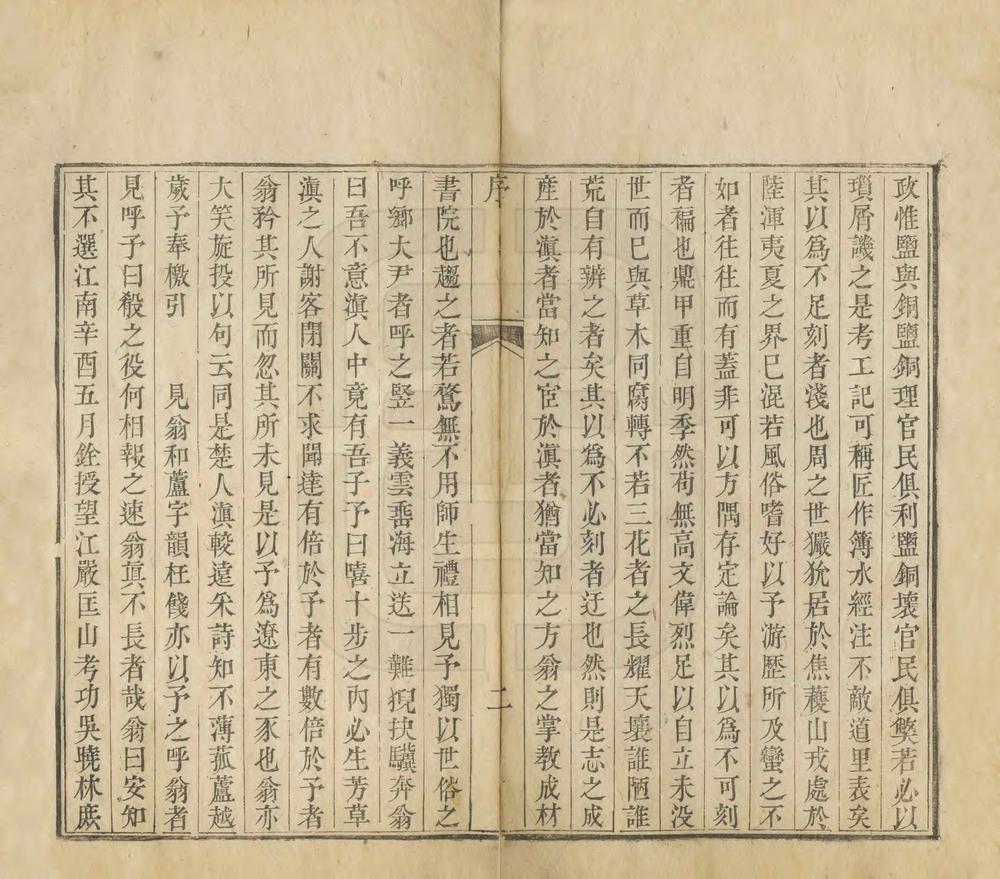 政惟鹽與銅鹽銅理官民俱利鹽銅壞官民俱獘若必以
瑣屑譏之是考工記可稱匠作簿水經注不敵道里表矣
其以爲不足刻者淺也周之世玁狁居於焦穫山戎處於
陸渾夷夏之界已混若風俗嗜好以予游歷所及蠻之不
如者往往而有蓋非可以方隅存定論矣其以爲不可刻
者褊也鼎甲重自明季然苟無高文偉烈足以自立未没
世而已與草木同腐轉不若三花者之長耀天壤誰陋誰
荒自有辨之者矣其以爲不必刻者迂也然則是志之成
產於滇者當知之宦於滇者猶當知之方翁之掌教成材
序
二
書院也趨之者若鶩無不用師生禮相見予獨以世俗之
呼鄉大尹者呼之竪一義雲垂海立送一難猊抉驥奔翁
曰吾不意滇人中竟有吾子予曰嘻十步之內必生芳草
滇之人謝客閉關不求聞達有倍於予者有數倍於予者
翁矜其所見而忽其所未見是以予爲遼東之豕也翁亦
大笑旋投以句云同是楚人滇較遠采詩知不薄菰蘆越
歲予奉檄引　見翁和蘆字韻枉餞亦以予之呼翁者
見呼予曰殽之役何相報之速翁眞不長者哉翁曰安知
其不選江南辛酉五月銓授望江嚴匡山考功吳曉林庶